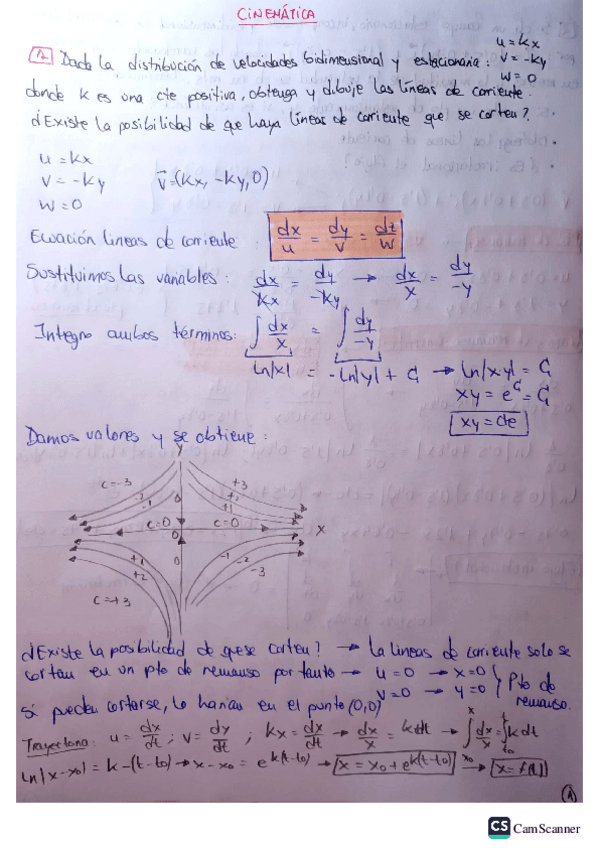 CINEMÁTICA
1. Dada la distribución de velocidades bidimensional y estacionaria: u = kx
v = -ky
w = 0
donde k es una cte positiva, obtenga y dibuje las líneas de corriente.
¿Existe la posibilidad de que haya líneas de corriente que se corten?
u = kx
v = -ky V⃗ = (kx, -ky, 0)
w = 0
Ecuación líneas de corriente: dx/u = dy/v = dz/w
Sustituimos las variables: dx/kx = dy/-ky → dx/x = dy/-y
Integro ambos términos: ∫ dx/x = ∫ dy/-y
ln|x| = -ln|y| + C → ln|xy| = C
xy = e^C = C
xy = cte
Damos valores y se obtiene:
y
c=-3 -2 -1 0 +3 +2 +1
c=0 c=0 x
0
+1 +2 0 -1 -2 -3
c=+3
¿Existe la posibilidad de que se corten? → La lineas de corriente solo se
cortan en un pto de remanso por tanto → u=0 → x=0
v=0 → y=0 } Pto de remanso.
Sí pueden cortarse, lo harían en el punto (0,0)
Trayectoria: u = dx/dt ; v = dy/dt ; kx = dx/dt → dx/x = kdt → ∫x₀^x dx/x = ∫t₀^t kdt
ln|x-x₀| = k-(t-t₀) → x-x₀ = e^k(t-t₀) → x = x₀ + e^k(t-t₀) → x = f(t)
1
CS CamScanner